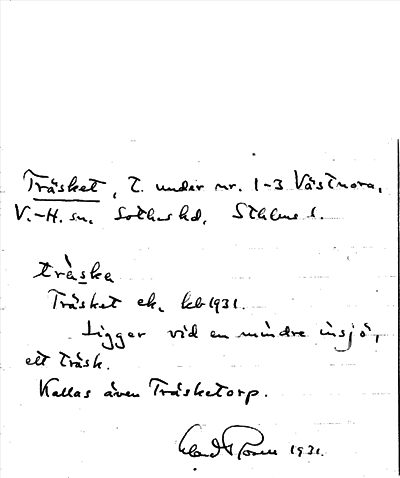 Träsket, T. under nr. 1-3 Västnora,
V.-H. sn. Sotholms hd, Sthlms l.
träska
Träsket ek. kb 1931.
Ligger vid en mindre insjö,
ett träsk.
Kallas även Träsketorp.
1931.